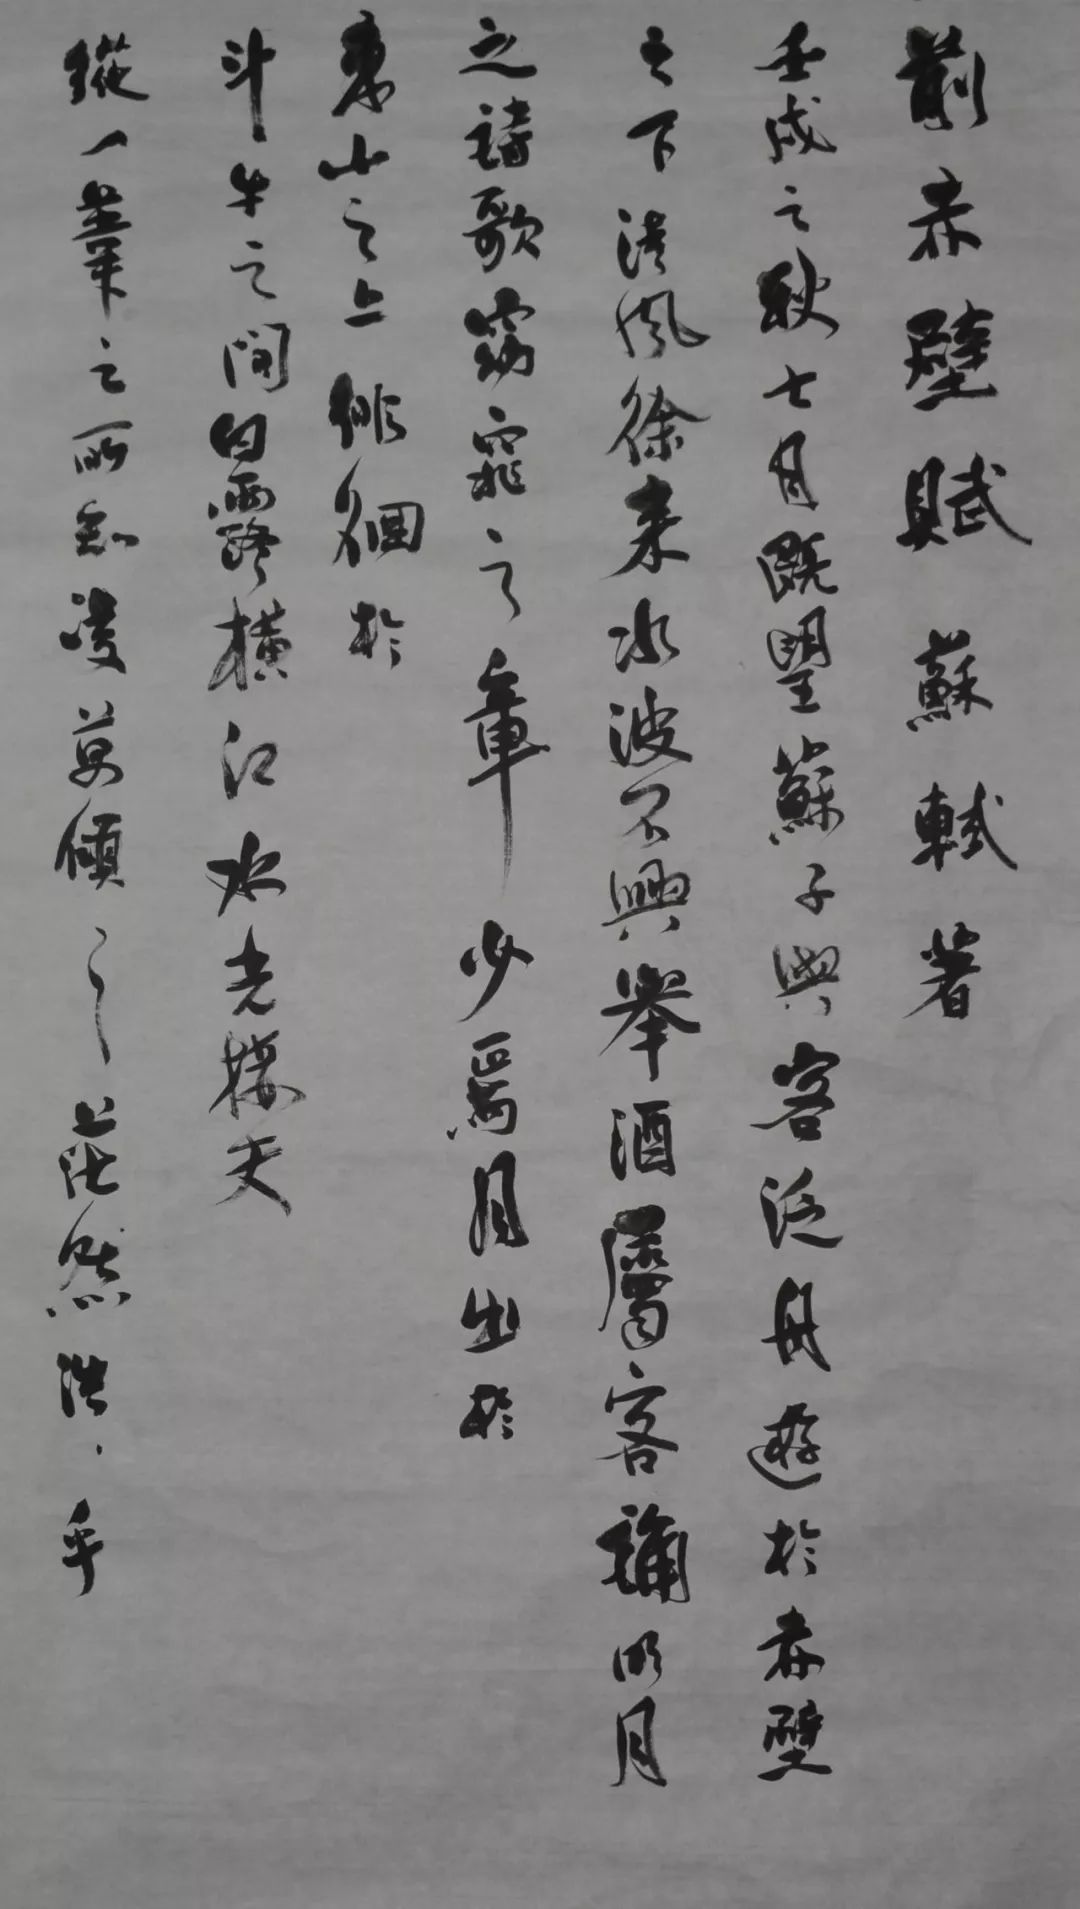 前赤壁賦 蘇軾著
壬戌之秋七月既望蘇子與客泛舟遊於赤壁
之下清風徐来水波不興舉酒屬客誦明月
之詩歌窈窕之章少焉月出於
東山之上徘徊於
斗牛之間白露橫江水光接天
縱一葦之所如凌萬頃之茫然浩、乎